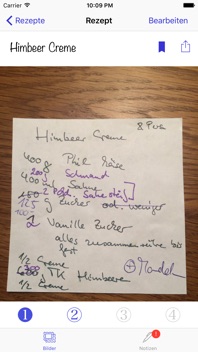 Carrier 10:09 PM
Rezepte Rezept Bearbeiten
Himbeer Creme
8 Pers
Himbeer Creme
400 g Phil. Käse
200g Schmand
400 ml Sahne
2 Pckg. Sahnestif
125 g Zucker od. weniger
2 Vanille Zucker
alles zusammen rühren bis
fest
1/2 Creme
TK Himbeeren
1/2 Creme
+ Mandel
1 2 3 4
Bilder Notizen